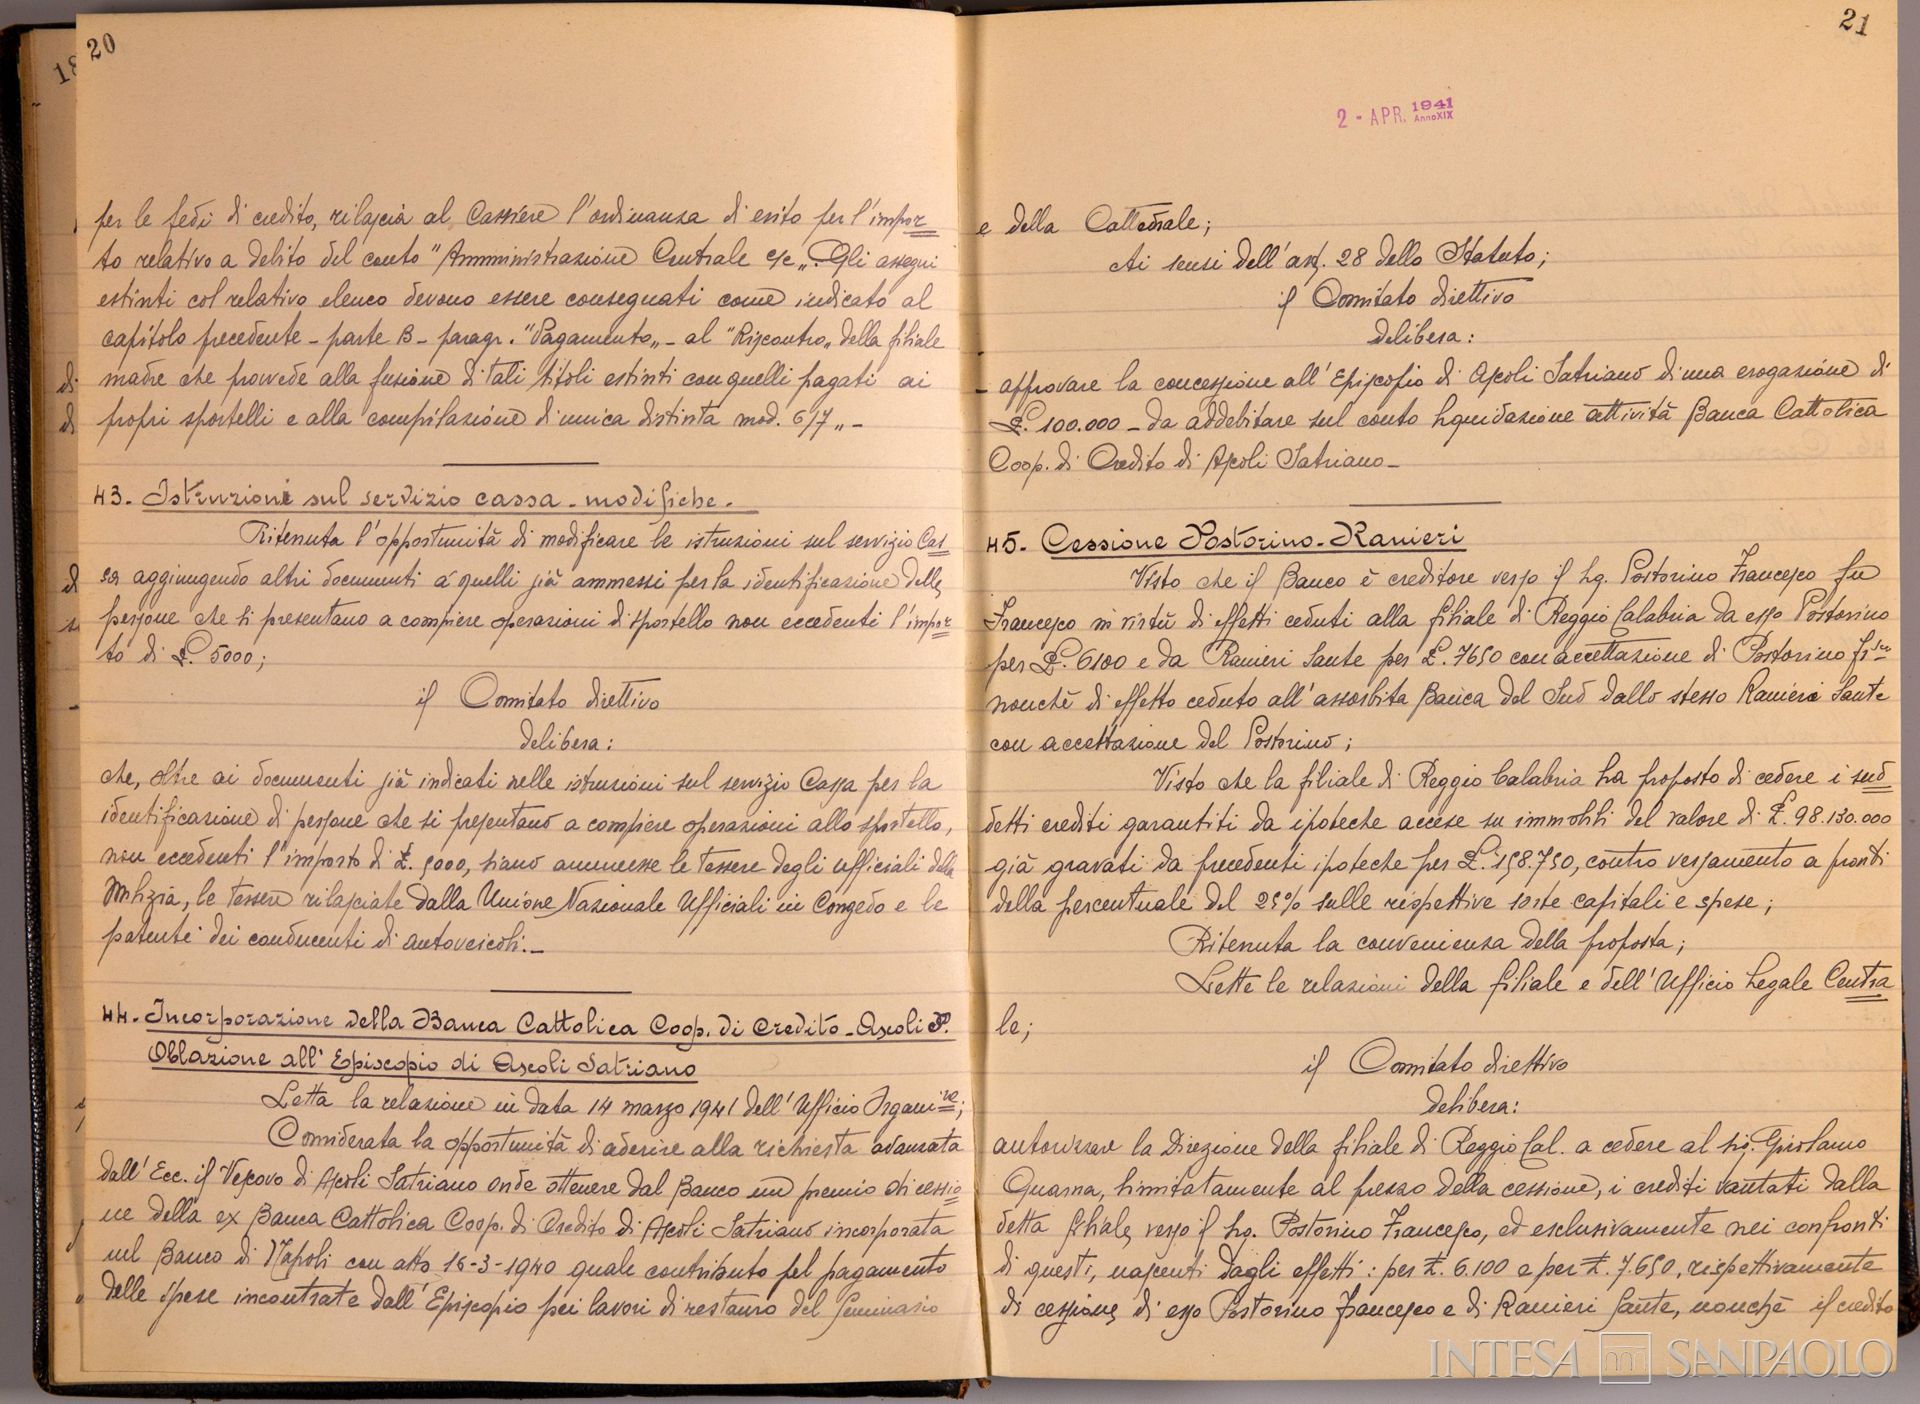 18
20
per le fedi di credito, rilascia al Cassiere l'ordinanza di esito per l'impor
to relativo a debito del conto "Amministrazione Centrale c/c„. Gli assegni
estinti col relativo elenco devono essere consegnati come indicato al
capitolo precedente - parte B - paragr. "Pagamento„ - al "Riscontro„ della filiale
madre che provvede alla fusione di tali titoli estinti con quelli pagati ai
propri sportelli e alla compilazione di unica distinta mod. 6/7 „ -
43. Istruzioni sul servizio cassa - modifiche.
Ritenuta l'opportunità di modificare le istruzioni sul servizio Cas
sa aggiungendo altri documenti a quelli già ammessi per la identificazione delle
persone che si presentano a compiere operazioni di sportello non eccedenti l'impor
to di £. 5000;
il Comitato direttivo
delibera:
che, oltre ai documenti già indicati nelle istruzioni sul servizio Cassa per la
identificazione di persone che si presentano a compiere operazioni allo sportello,
non eccedenti l'importo di £. 5000, siano ammesse le tessere degli ufficiali della
Milizia, le tessere rilasciate dalla Unione Nazionale Ufficiali in Congedo e le
patenti dei conducenti di autoveicoli. -
44. Incorporazione della Banca Cattolica Coop. di Credito - Ascoli S.
Oblazione all'Episcopio di Ascoli Satriano
Letta la relazione in data 14 marzo 1941 dell'Ufficio Organi ne;
Considerata la opportunità di aderire alla richiesta avanzata
dall'Ecc. il Vescovo di Ascoli Satriano onde ottenere dal Banco un premio di cessio
ne della ex Banca Cattolica Coop. di Credito di Ascoli Satriano incorporata
nel Banco di Napoli con atto 16-3-1940 quale contributo pel pagamento
delle spese incontrate dall'Episcopio pei lavori di restauro del Seminario
21
2 - APR. 1941
Anno XIX
e della Cattedrale;
Ai sensi dell'art. 28 dello Statuto;
il Comitato direttivo
delibera:
- approvare la concessione all'Episcopio di Ascoli Satriano di una erogazione di
£. 100.000 - da addebitare sul conto liquidazione attività Banca Cattolica
Coop. di Credito di Ascoli Satriano -
45. Cessione Postorino - Ranieri
Visto che il Banco è creditore verso il sig. Postorino Francesco fu
Francesco in virtù di effetti ceduti alla filiale di Reggio Calabria da esso Postorino
per £. 6100 e da Ranieri Sante per £. 7650 con accettazione di Postorino
nonchè di effetto ceduto all'assorbita Banca del Sud dallo stesso Ranieri Sante
con accettazione del Postorino;
Visto che la filiale di Reggio Calabria ha proposto di cedere i sud
detti crediti garantiti da ipoteche accese su immobili del valore di £. 98.130.000
già gravati da precedenti ipoteche per £. 158.750, contro versamento a pronti
della percentuale del 25% sulle rispettive sorte capitali e spese;
Ritenuta la convenienza della proposta;
Lette le relazioni della filiale e dell'Ufficio Legale Centra
le;
il Comitato direttivo
delibera:
autorizzare la Direzione della filiale di Reggio Cal. a cedere al sig. Girolamo
Quarna, limitatamente al prezzo della cessione, i crediti vantati dalla
detta filiale, verso il sig. Postorino Francesco, ed esclusivamente nei confronti
di questi, nascenti dagli effetti: per £. 6.100 e per £. 7.650, rispettivamente
di cessione di esso Postorino Francesco e di Ranieri Sante, nonchè il credito
INTESA SANPAOLO